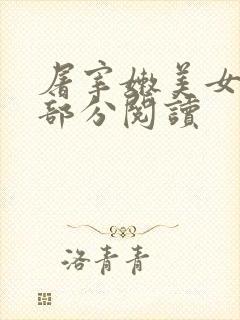 屠宰嫩美女
部分閱讀
洛青青